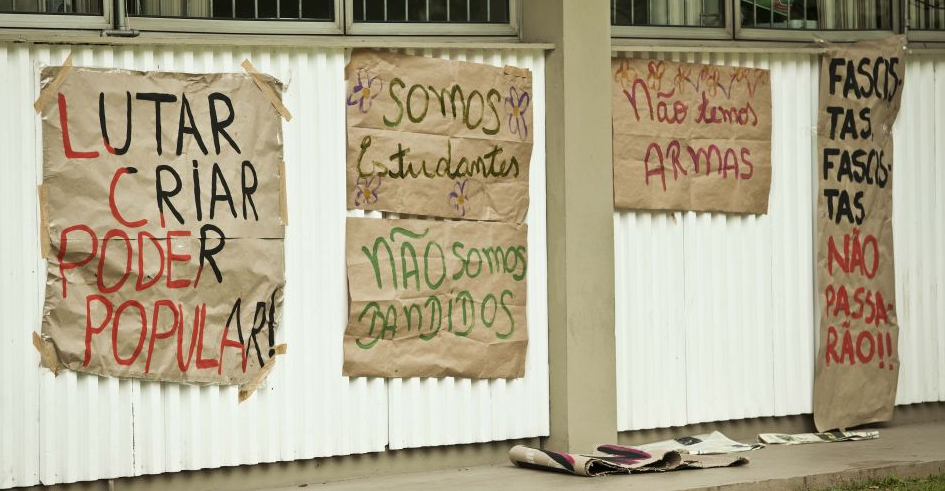 LUTAR
CRIAR
PODER
POPULAR!
SOMOS
Estudantes
NÃO SOMOS
BANDIDOS
Não temos
ARMAS
FASCIS-
TAS,
FASCIS-
TAS
NÃO
PASSA-
RÃO!!